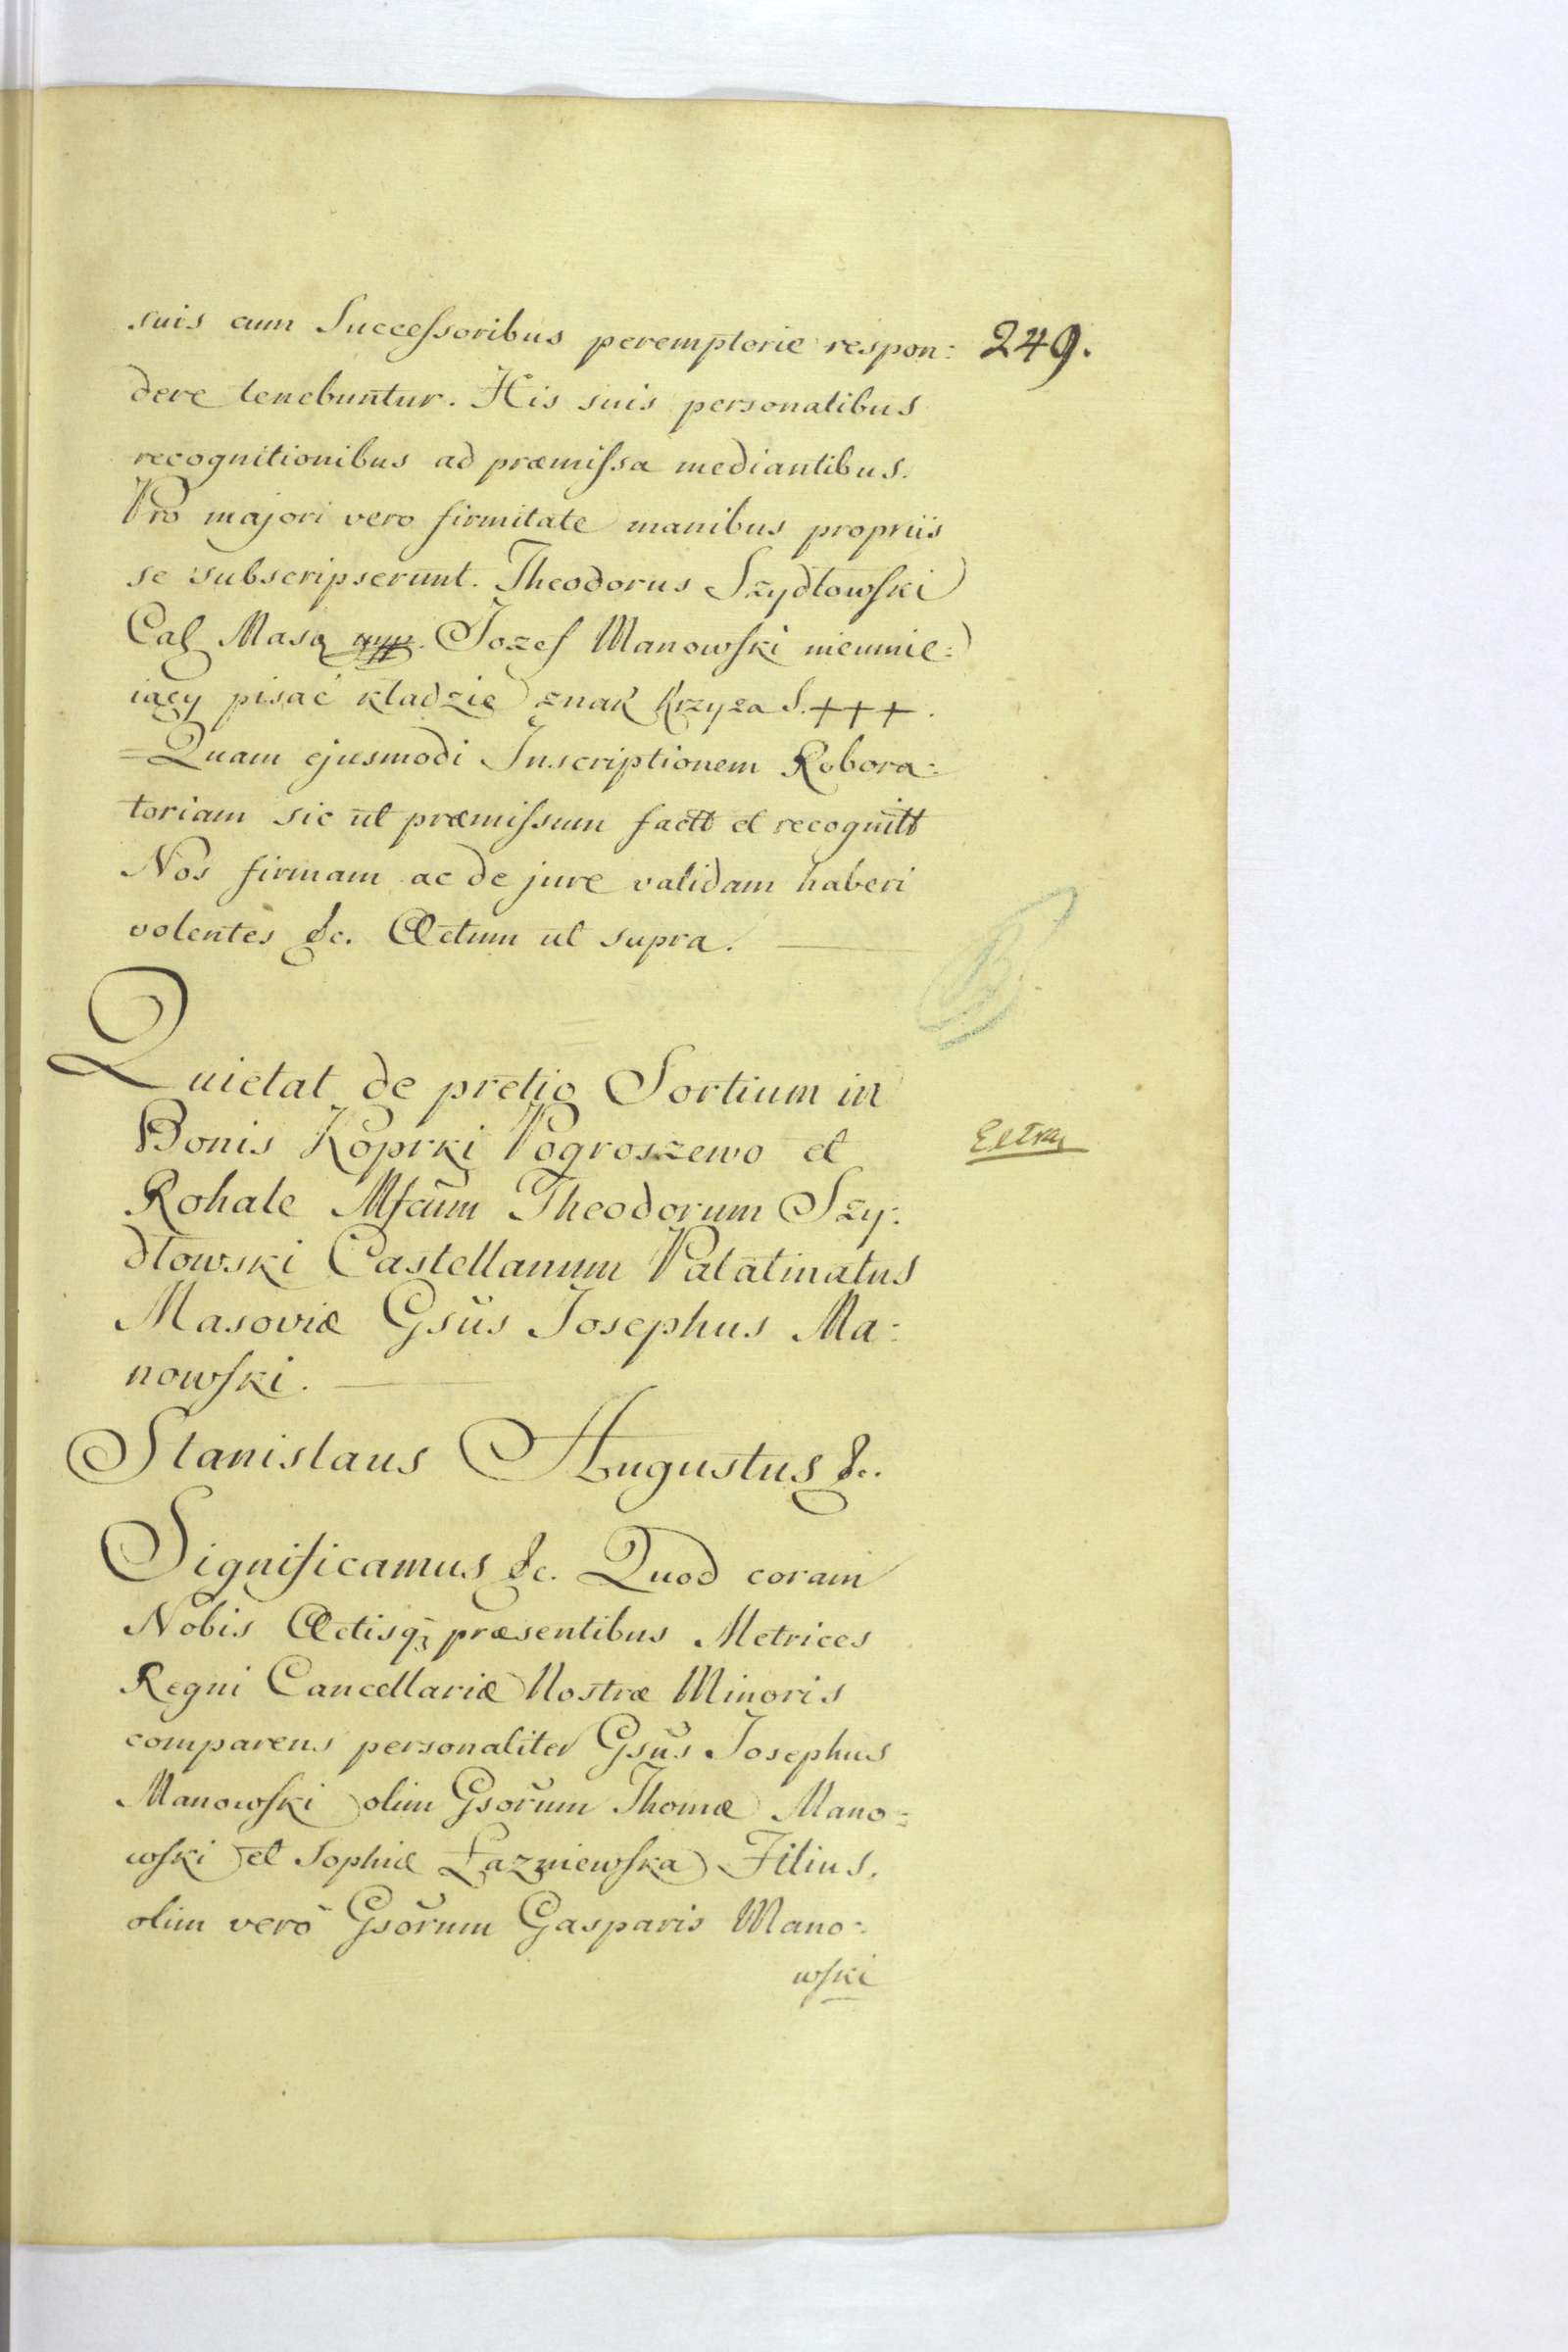 249.
suis cum Successoribus peremptorie respon:
dere tenebuntur. His suis personalibus
recognitionibus ad præmissa mediantibus.
Pro majori vero firmitate manibus propriis
se subscripserunt. Theodorus Szydłowski
Maso mpp. Jozef Manowski nieumie:
iący pisać kładzie znak Krzyża S. +++.
=Quam ejusmodi Inscriptionem Robora:
toriam sic ut præmissum factt et recognitt
Nos firmam ac de jure validam haberi
volentes &c. Actum ut supra.
Quietat de pretio Sortium in
Bonis Koprki Pogroszewo et
Rohale Mfcum Theodorum Szy:
dłowski Castellanum Palatinatus
Masoviæ Gsus Josephus Ma:
nowski.
Stanislaus Augustus &c.
Significamus &c. Quod coram
Nobis Actisq3 præsentibus Metrices
Regni Cancellariæ Nostræ Minoris
comparens personaliter Gsus Josephus
Manowski olim Gsorum Thomæ Mano:
wski et Sophiæ Łazniewska Filius,
olim vero Gsorum Gasparis Mano:
wski